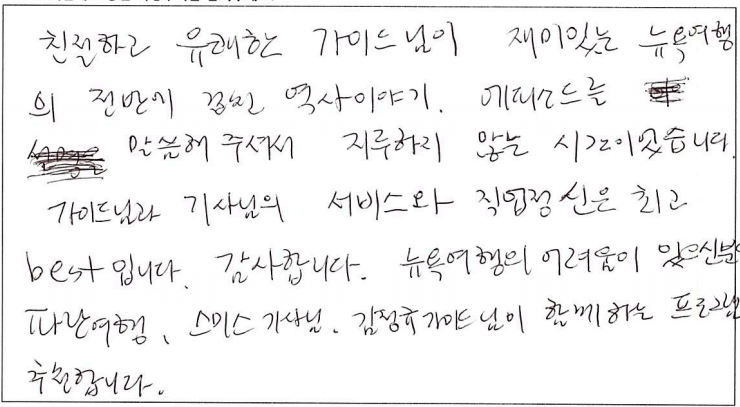 친절하고 유쾌한 가이드님이 재미있는 뉴욕여행
의 전반에 걸친 역사이야기. 에피소드를
말씀해 주셔서 지루하지 않는 시간이였습니다.
가이드님과 기사님의 서비스와 직업정신은 최고
best입니다. 감사합니다. 뉴욕여행의 어려움이 있으신분
파란여행, 스미스 기사님, 김정규가이드님이 함께하는 프로그램
추천합니다.